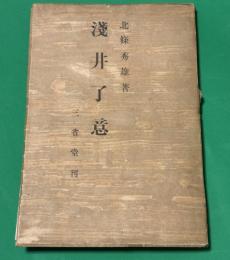 北條秀雄著
淺井了意
三省堂刊